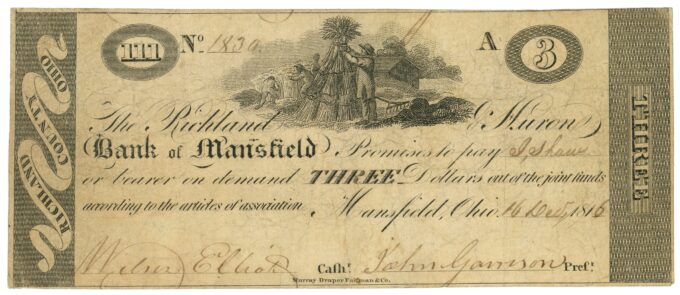 III
No. 1830
A
3
RICHLAND COUNTY OHIO
The Richland & Huron
Bank of Mansfield Promises to pay I, Shaw
or bearer on demand THREE Dollars out of the joint funds
according to the articles of association. Mansfield, Ohio. 16 Dec, 1816
Wilson Elliott Casht. John Garrison Prest.
Murray Draper Fairman & Co.
THREE